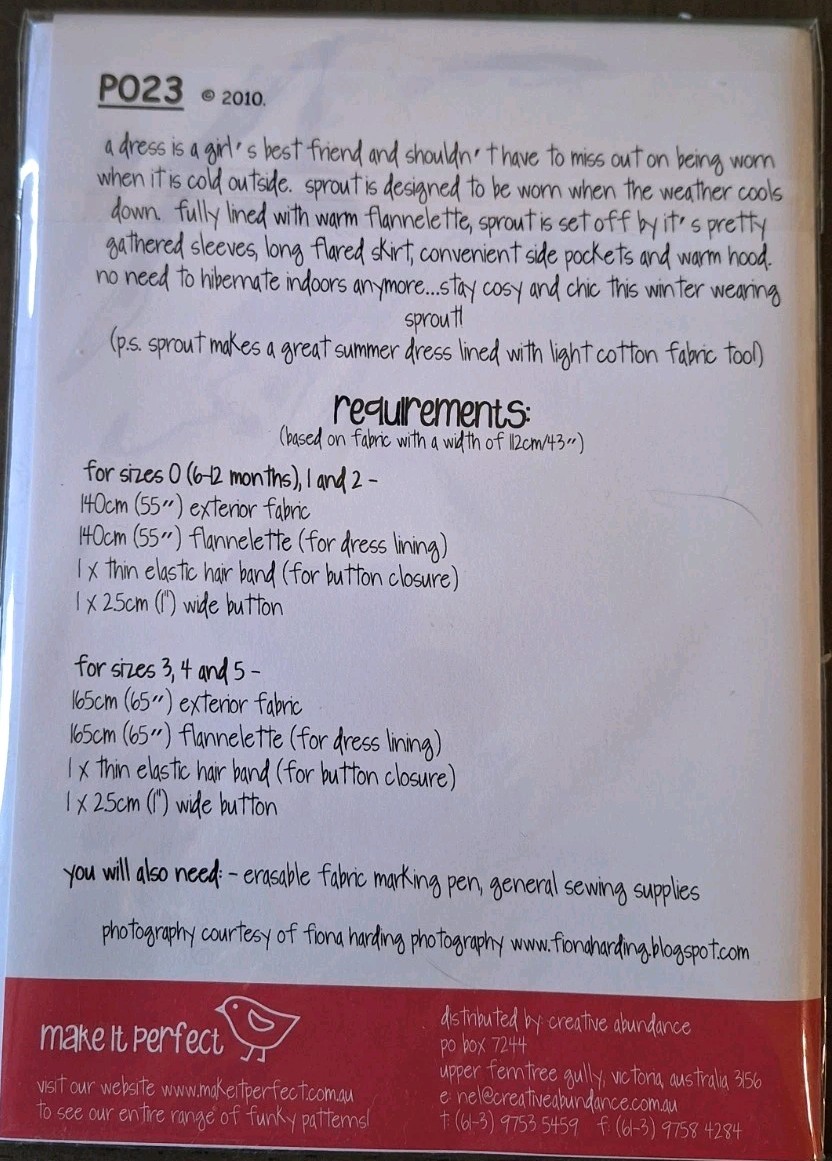 PO23 © 2010.
a dress is a girl's best friend and shouldn't have to miss out on being worn
when it is cold outside. sprout is designed to be worn when the weather cools
down. fully lined with warm flannelette, sprout is set off by it's pretty
gathered sleeves, long flared skirt, convenient side pockets and warm hood.
no need to hibernate indoors anymore...stay cosy and chic this winter wearing
sprout!
(p.s. sprout makes a great summer dress lined with light cotton fabric too!)
requirements:
(based on fabric with a width of 112cm/43")
for sizes 0 (6-12 months), 1 and 2 -
140cm (55") exterior fabric
140cm (55") flannelette (for dress lining)
1 x thin elastic hair band (for button closure)
1 x 2.5cm (1") wide button
for sizes 3, 4 and 5 -
165cm (65") exterior fabric
165cm (65") flannelette (for dress lining)
1 x thin elastic hair band (for button closure)
1 x 2.5cm (1") wide button
you will also need: - erasable fabric marking pen, general sewing supplies
photography courtesy of fiona harding photography www.fionaharding.blogspot.com
make it perfect
visit our website www.makeitperfect.com.au
to see our entire range of funky patterns!
distributed by: creative abundance
po box 7244
upper ferntree gully, victoria, australia 3156
e: nel@creativeabundance.com.au
t: (61-3) 9753 5459 f: (61-3) 9758 4284